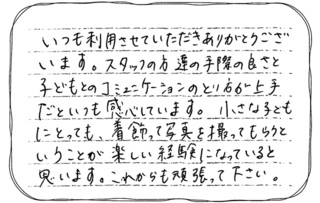 いつも利用させていただきありがとうござ
います。スタッフの方達の手際の良さと
子どもとのコミュニケーションのとり方が上手
だといつも感心しています。小さな子ども
にとっても、着飾って写真を撮ってもらうと
いうことが楽しい経験になっていると
思います。これからも頑張って下さい。